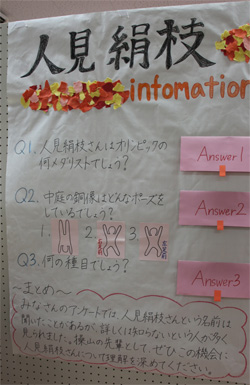 人見絹枝
infomation
Q1. 人見絹枝さんはオリンピックの
何メダリストでしょう?
Answer1
Q2. 中庭の銅像はどんなポーズを
しているでしょう?
Answer2
1. 2. 3.
Q3. 何の種目でしょう?
Answer3
〜まとめ〜
みなさんのアンケートでは、人見絹枝さんという名前は
聞いたことがあるが、詳しくは知らないという人が多く
見られました。横山の先輩として、ぜひこの機会に
人見絹枝さんについて理解を深めてください。